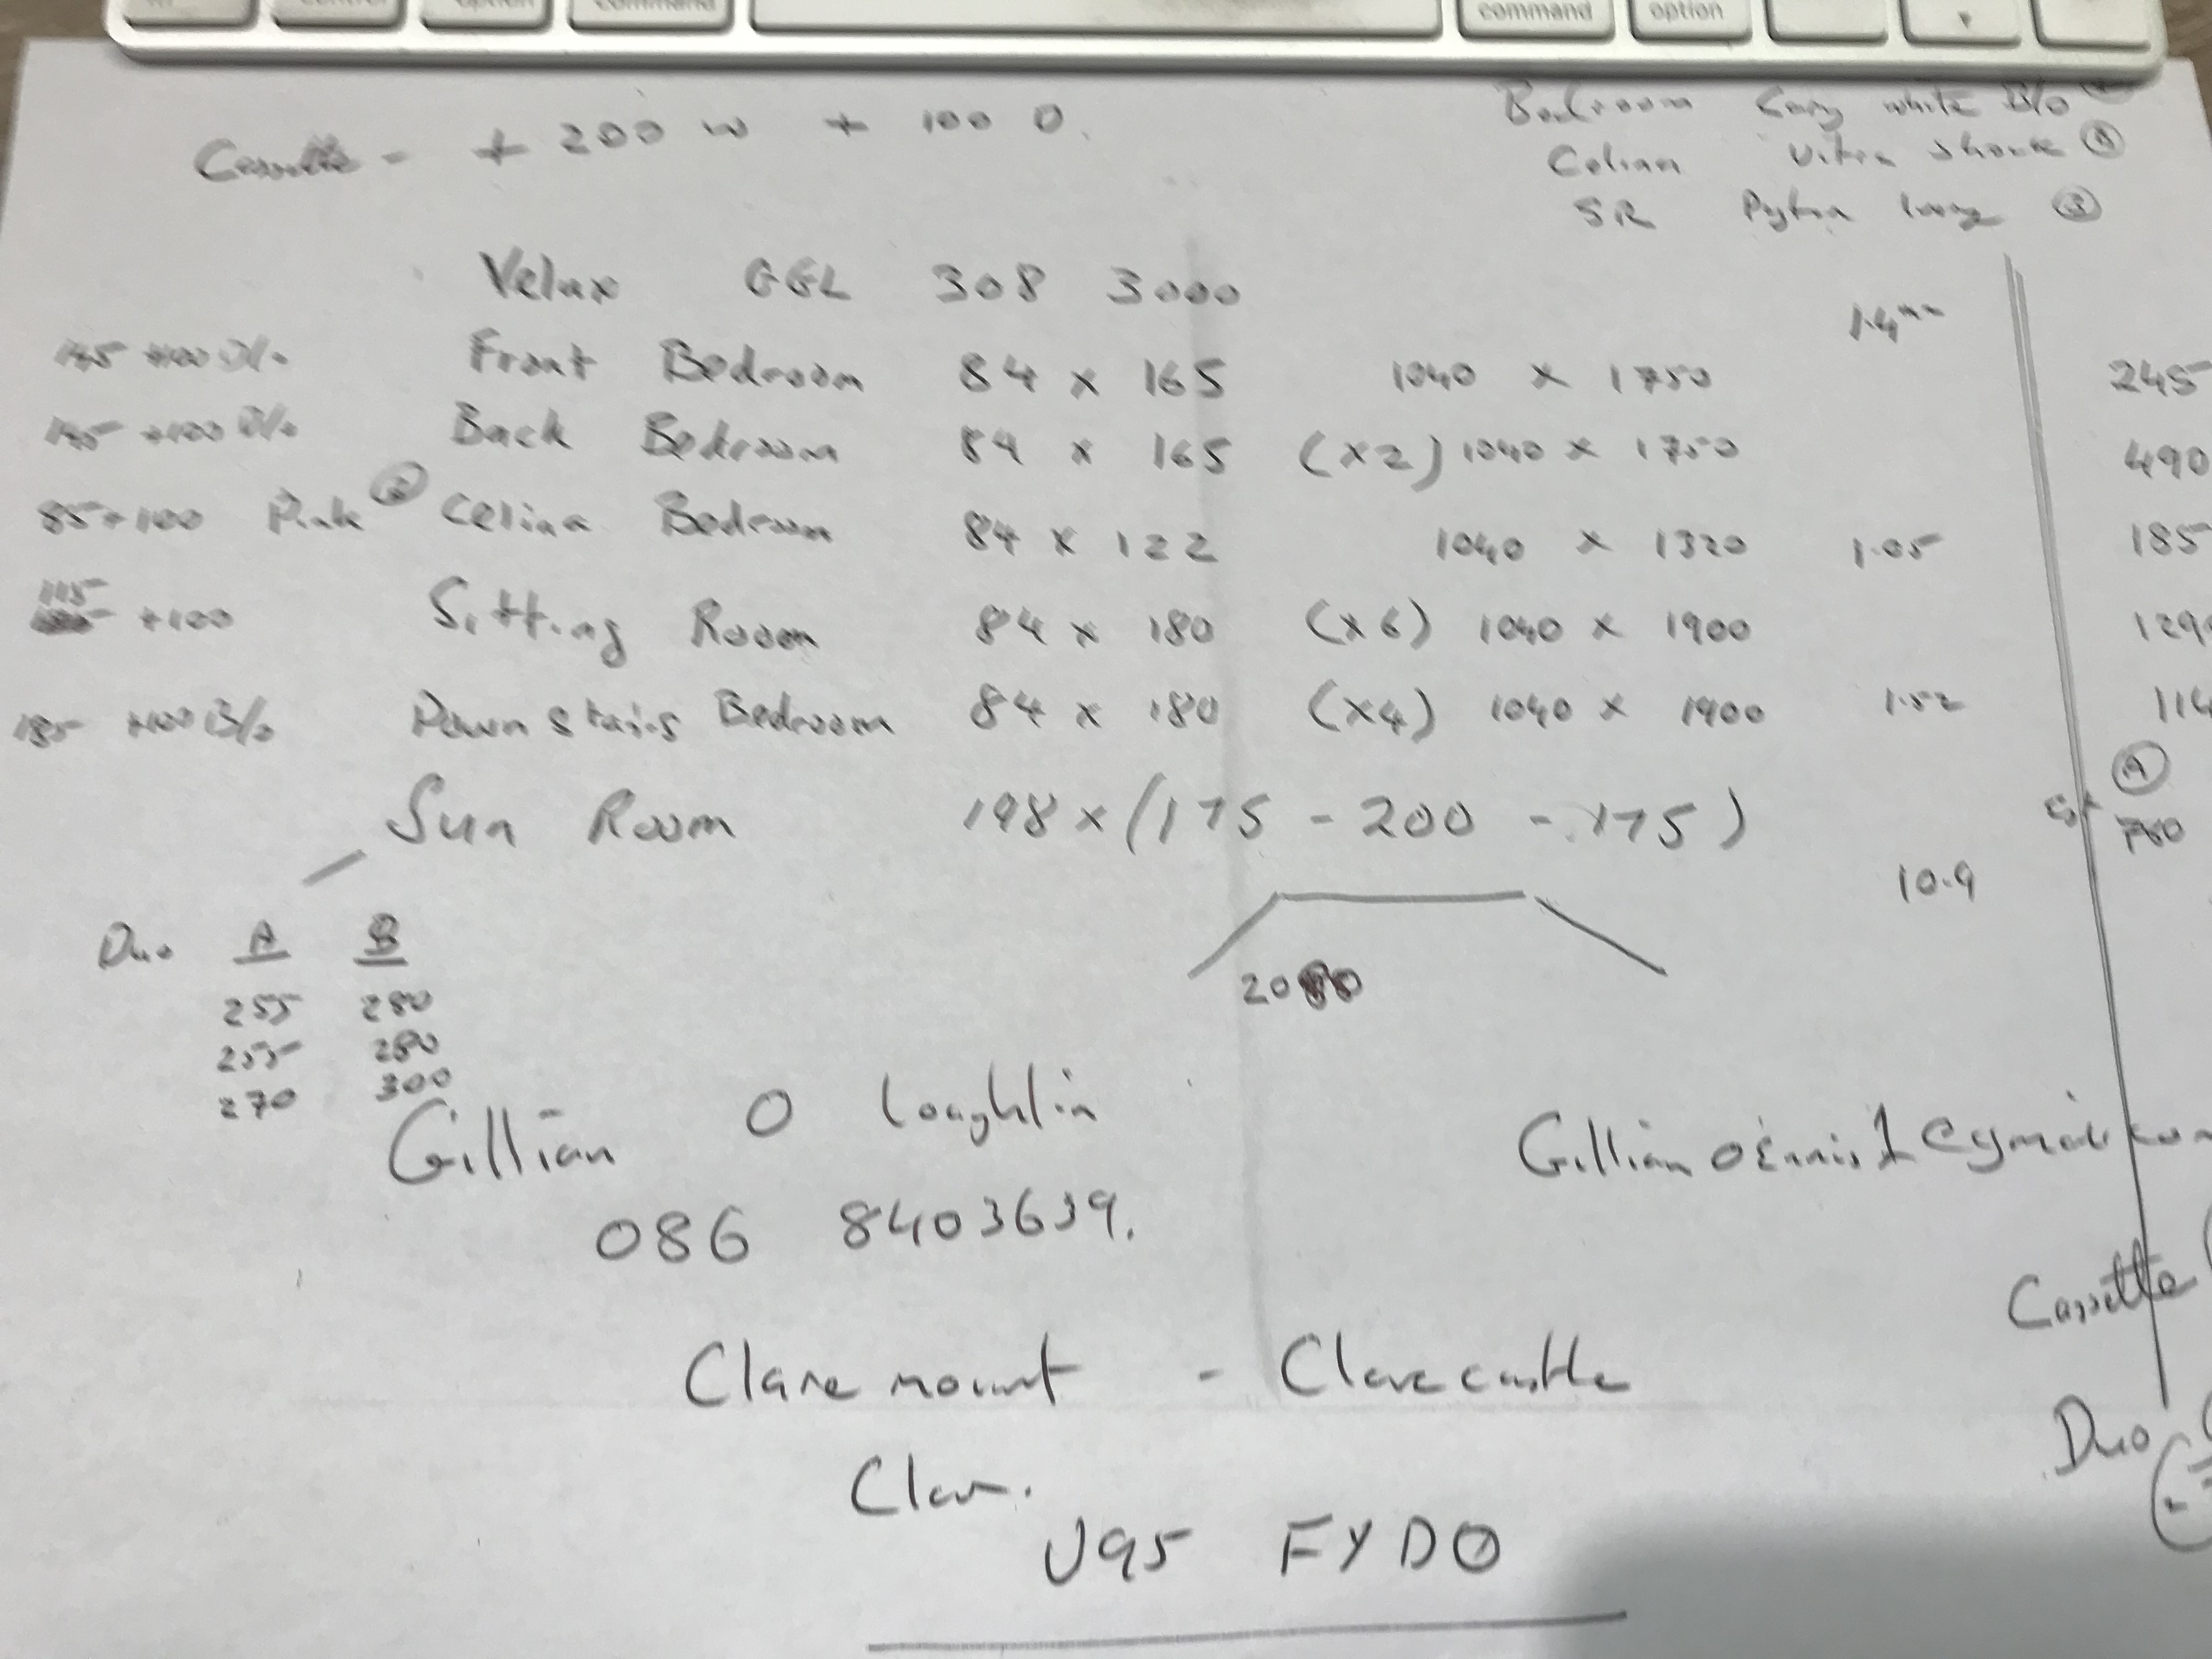 control option command command option
Cassette - + 200 W + 100 D.
Bedroom white B/o
Ultra
SR Ivory ③
Velux GGL 308 3000
1.4
145 +100 B/o Front Bedroom 84 x 165 1040 x 1750 245
145 +100 B/o Back Bedroom 84 x 165 (x2) 1040 x 1750 490
85+100 Pink ② Celina Bedroom 84 x 122 1040 x 1320 1.05 185
115
+100 Sitting Room 84 x 180 (x6) 1040 x 1900 129
185 +100 B/o Downstairs Bedroom 84 x 180 (x4) 1040 x 1900 1.52 114
Ⓐ
Sun Room 198 x (175 - 200 - 175) 780
10.9
Duo A B
255 280
255 280
270 300
2080
Gillian O Loughlin
086 8403639.
Cassette
Claremount - Clarecastle
Duo
Clare.
V95 FYD0